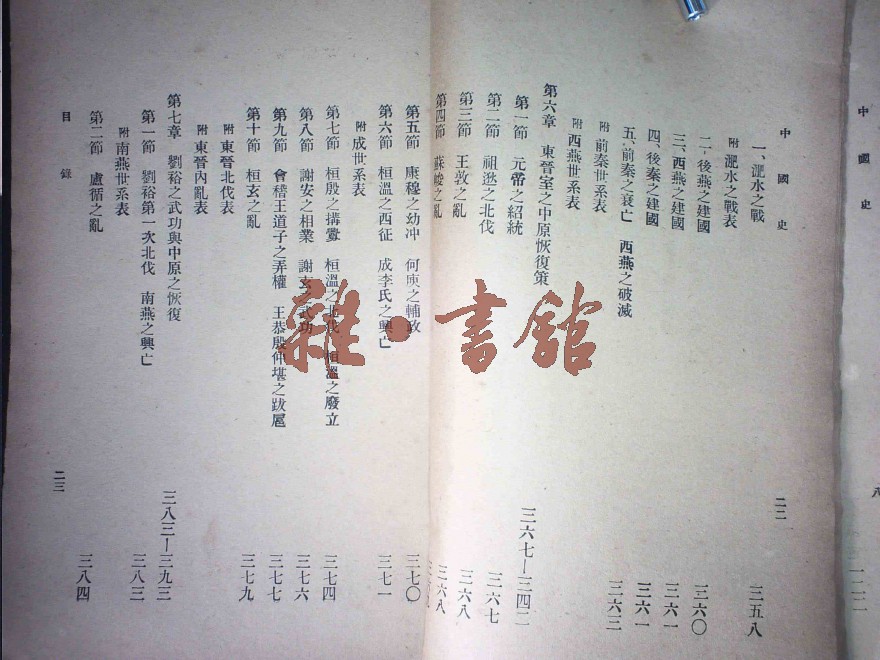 中國史
二二
一、淝水之戰 三五八
附 淝水之戰表
二、後燕之建國 三六〇
三、西燕之建國 三六一
四、後秦之建國 三六一
五、前秦之衰亡 西燕之破滅 三六三
附 前秦世系表
附 西燕世系表
第六章 東晉室之中原恢復策 三六七—三四二
第一節 元帝之紹統 三六七
第二節 祖逖之北伐 三六八
第三節 王敦之亂 三六八
第四節 蘇峻之亂
第五節 康穆之幼冲 何庾之輔政 三七〇
第六節 桓溫之西征 成李氏之興亡 三七一
附 成世系表
第七節 桓殷之搆釁 桓溫之北伐 桓溫之廢立 三七四
第八節 謝安之相業 謝玄之武功 三七六
第九節 會稽王道子之弄權 王恭殷仲堪之跋扈 三七七
第十節 桓玄之亂 三七九
附 東晉北伐表
附 東晉內亂表
第七章 劉裕之武功與中原之恢復 三八三—三九三
第一節 劉裕第一次北伐 南燕之興亡 三八三
附 南燕世系表
第二節 盧循之亂 三八四
目錄
二三
中國史
雜·書館